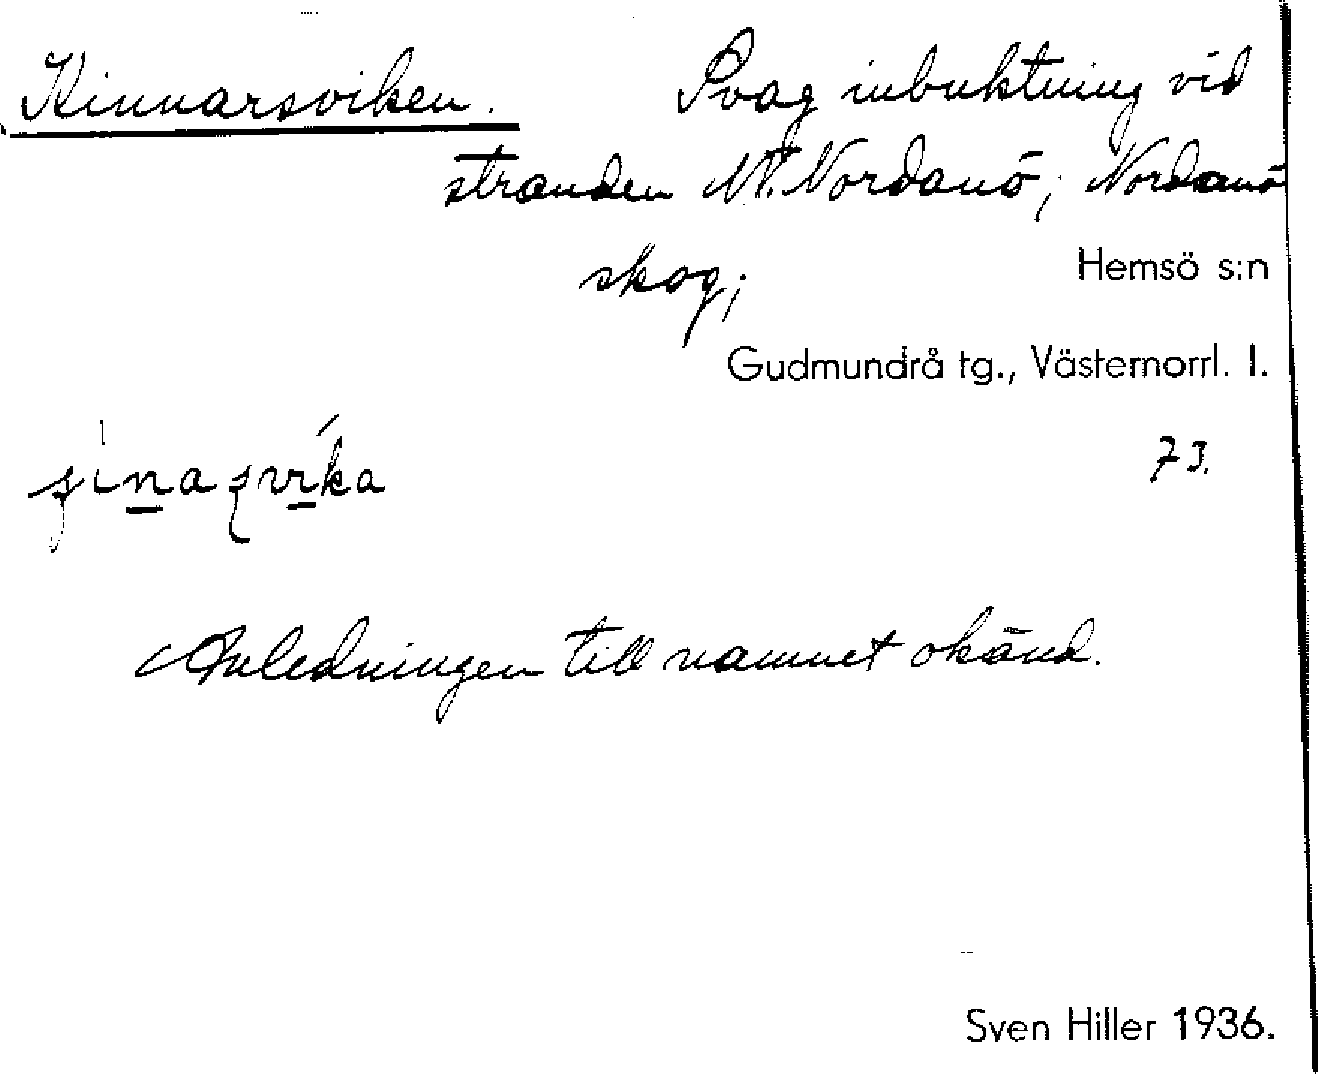 Kinnarsviken. Svag inbuktning vid
stranden NV. Nordanö; Nordanö
skog;
Hemsö s:n
Gudmundrå tg., Västernorrl. l.
73.
Anledningen till namnet okänd.
Sven Hiller 1936.